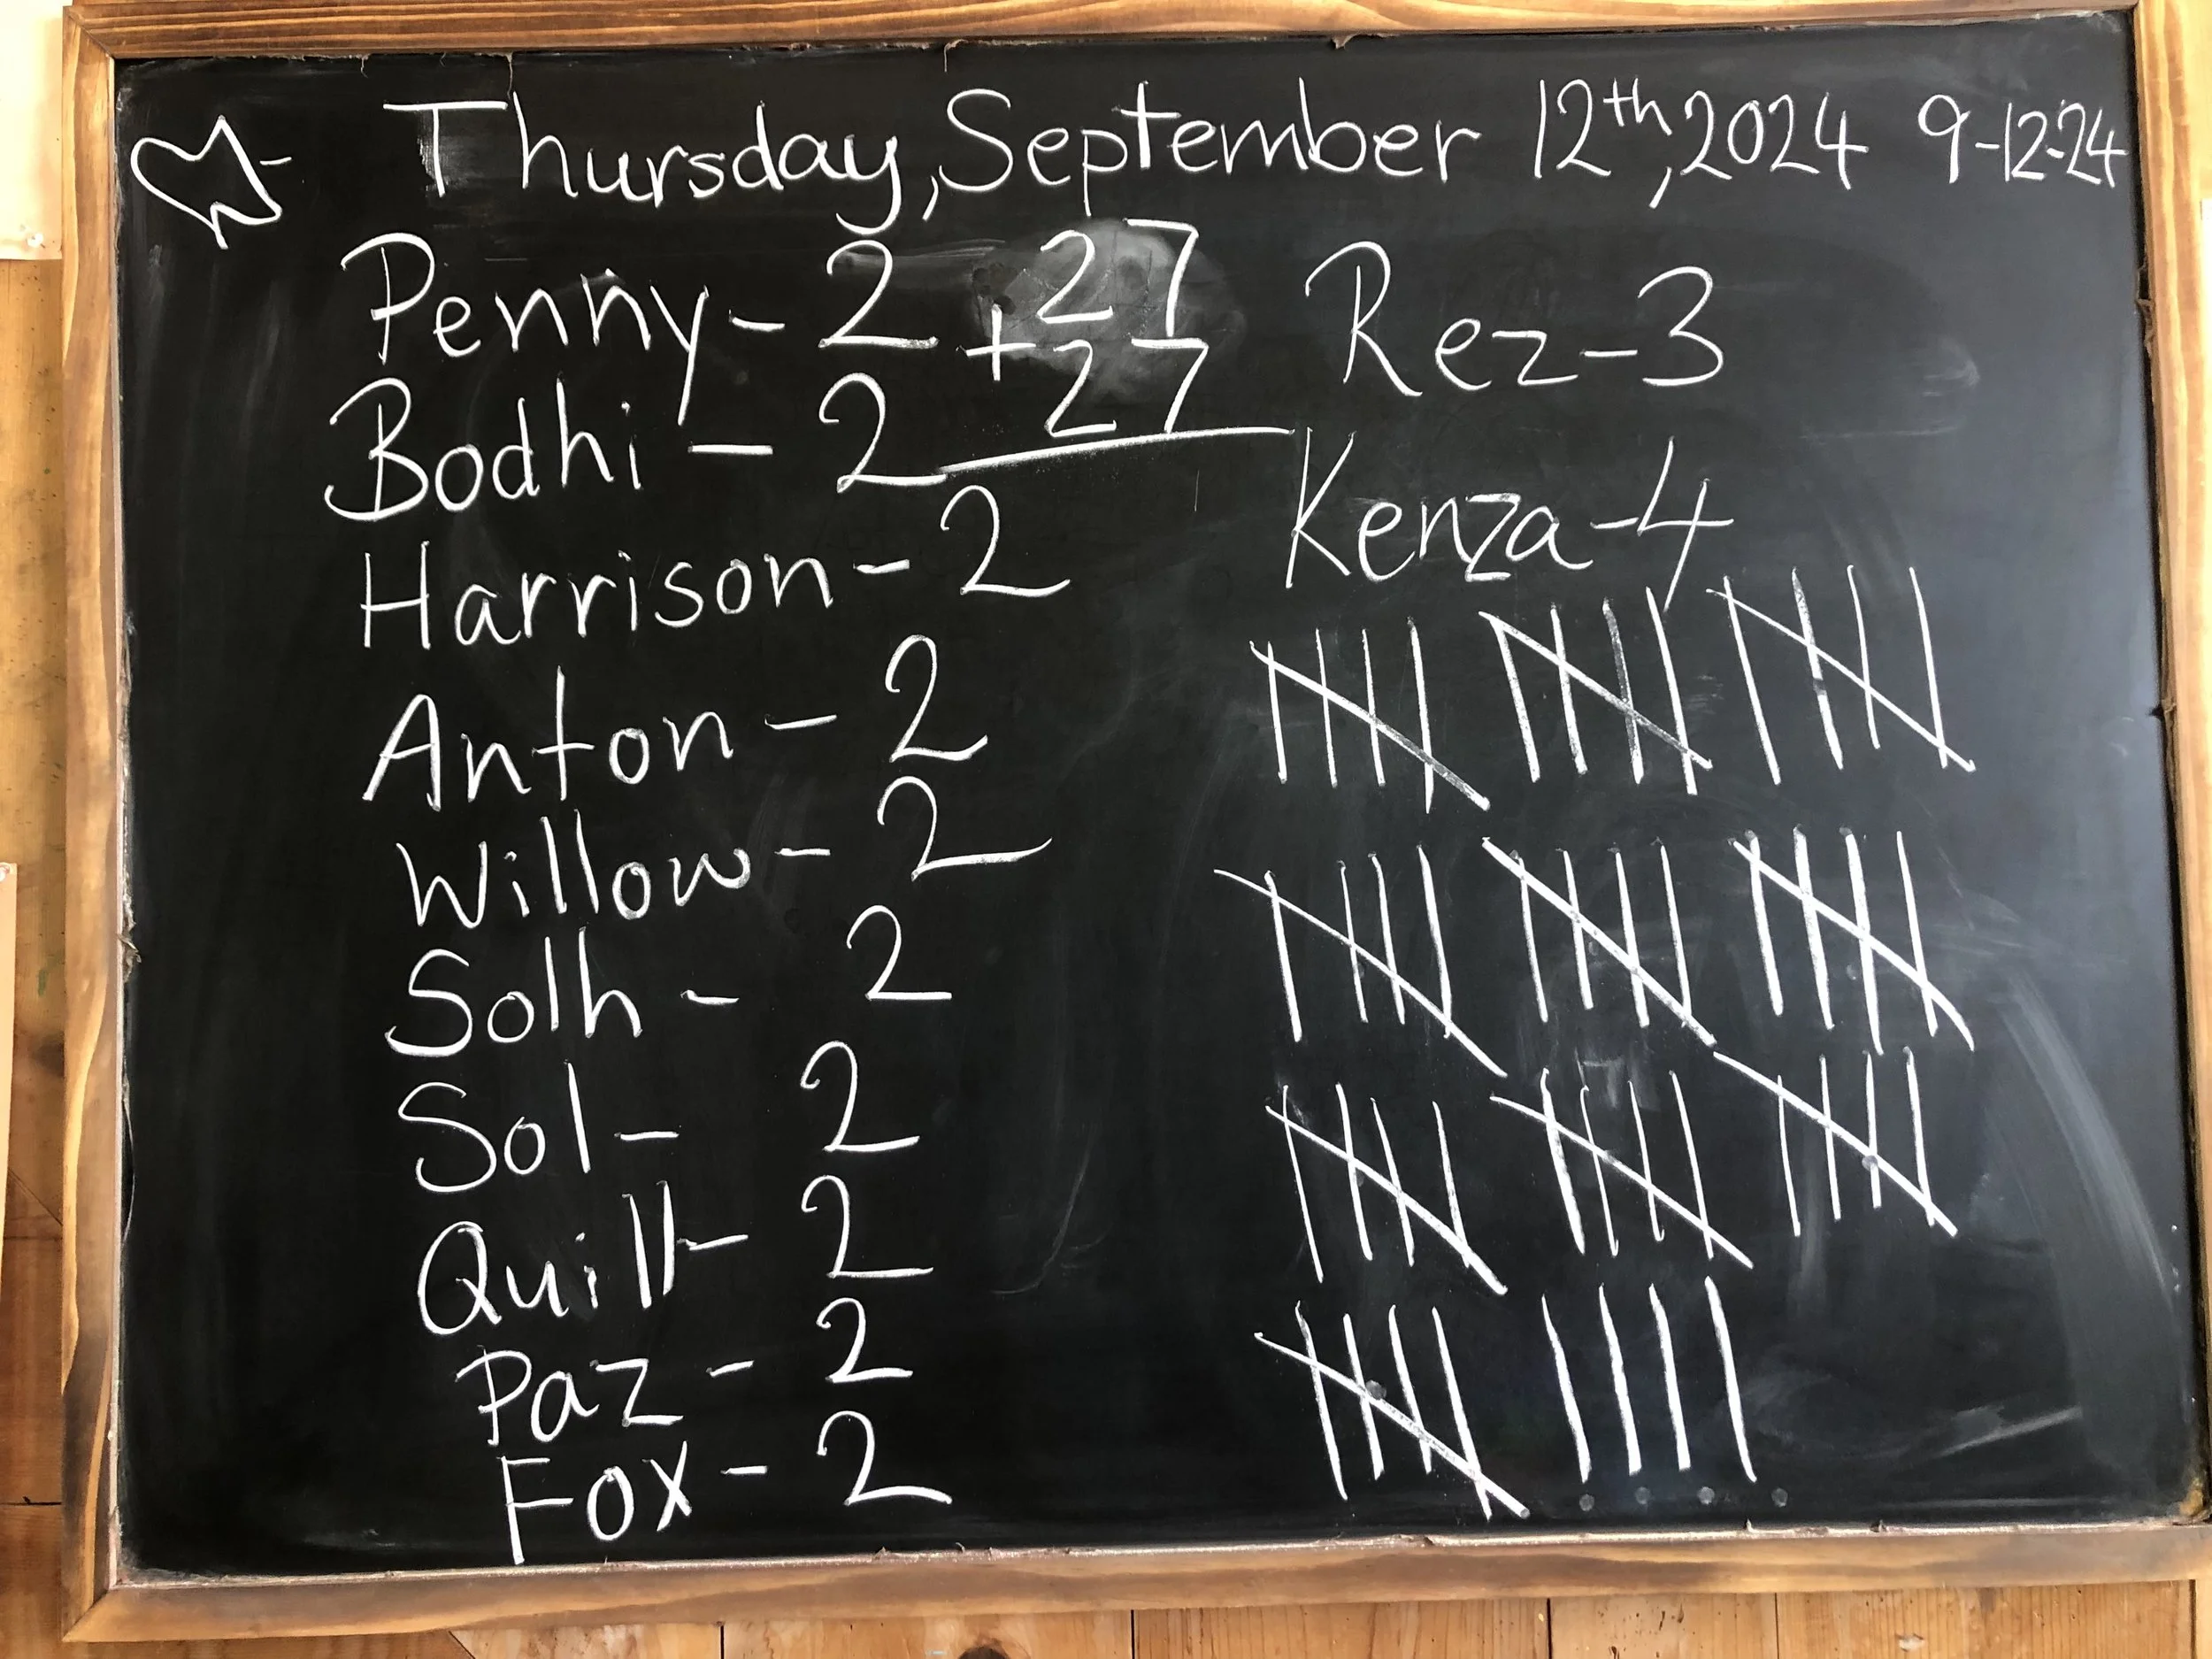 Thursday, September 12th, 2024 9-12-24
Penny - 2
Bodhi - 2
Harrison - 2
Anton - 2
Willow - 2
Solh - 2
Sol - 2
Quill - 2
Paz - 2
Fox - 2
27
+27
Rez - 3
Kenza - 4